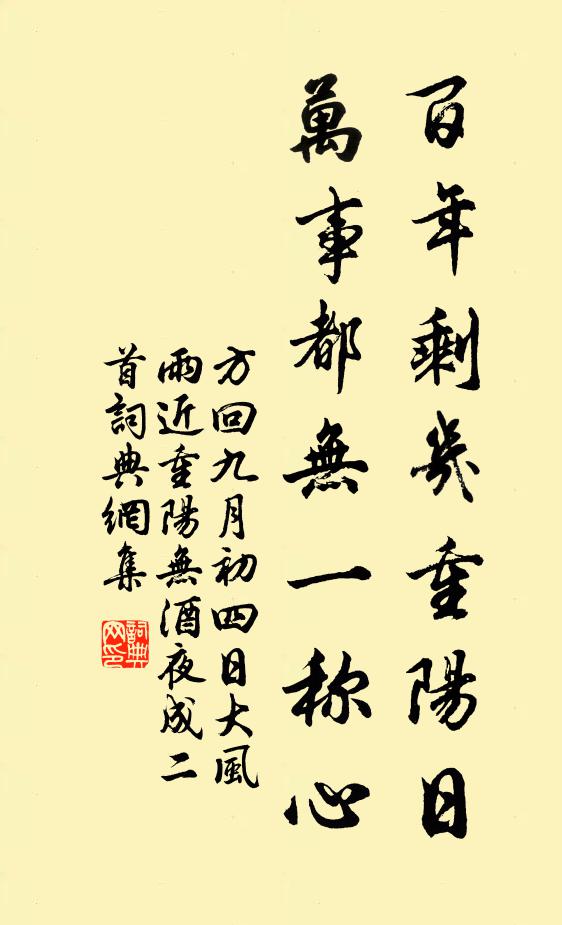 百年剩幾重陽日
萬事都無一称心
方回九月初四日大風
雨近重陽無酒夜成二
首詞典網集
詞典
网印